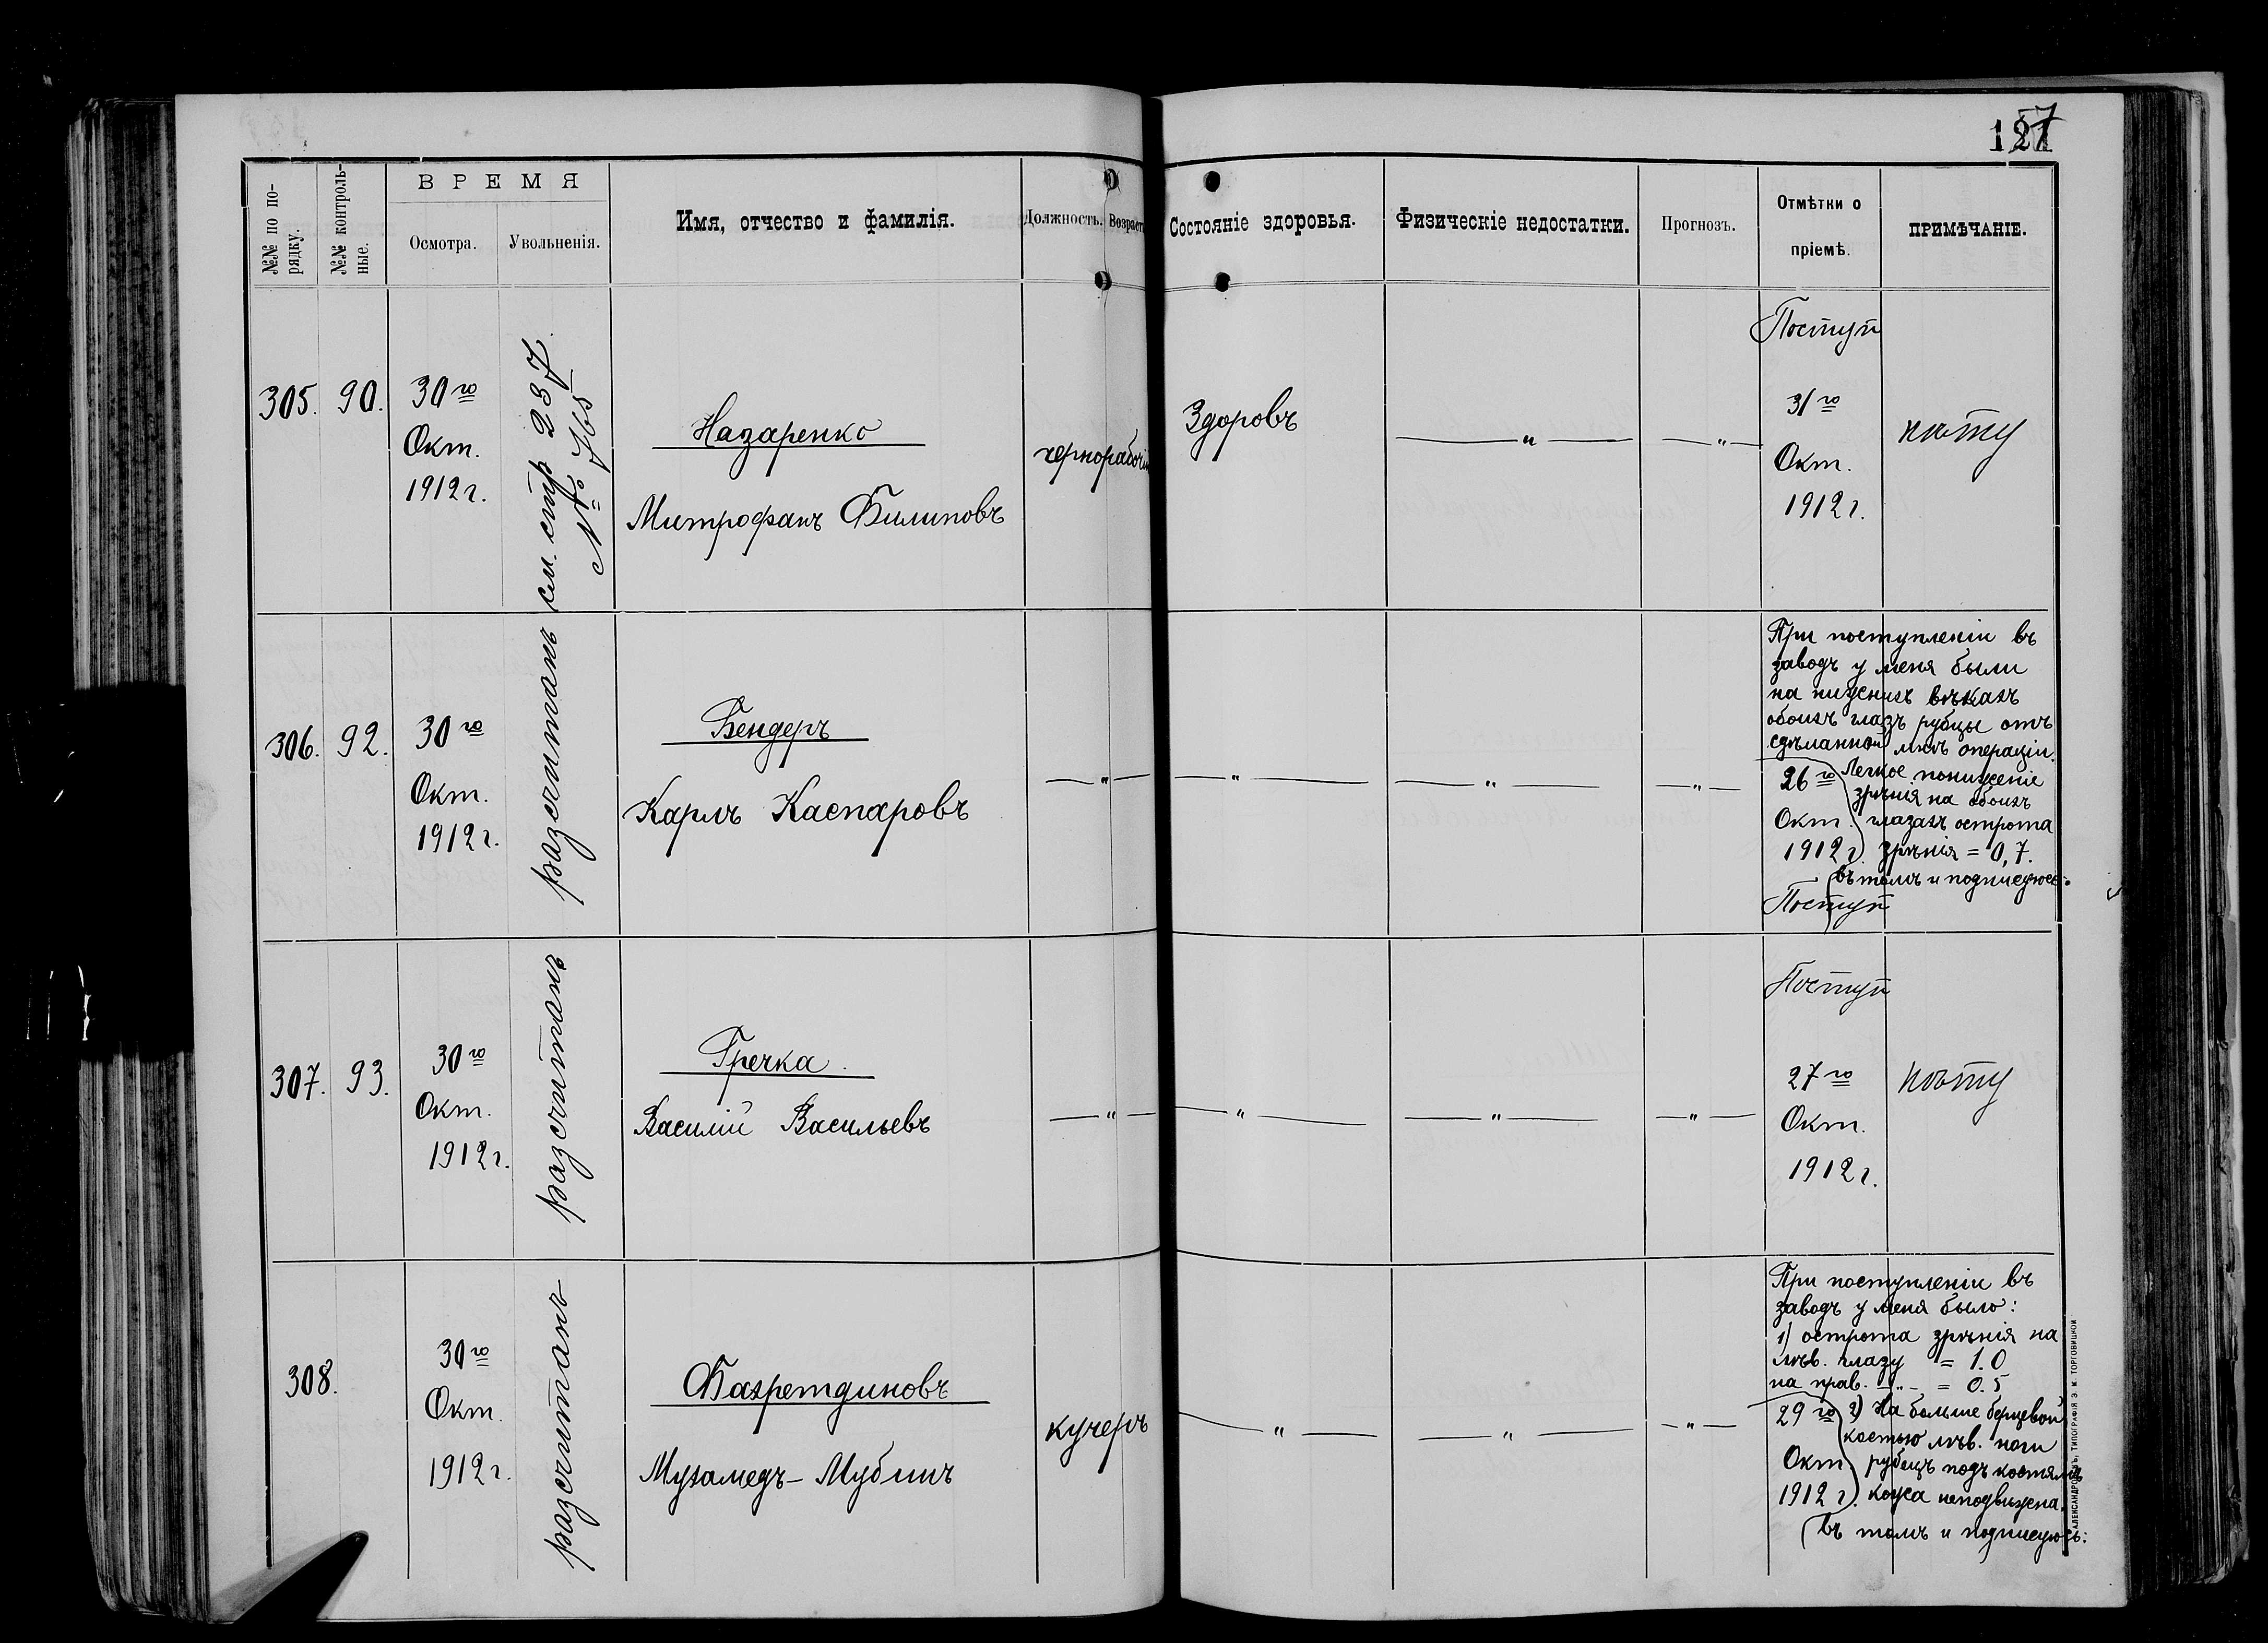 127
57
№№ по по-
рядку.
№№ контроль-
ные.
ВРЕМЯ
Осмотра.
Увольненія.
Имя, отчество и фамилія.
Должность.
Возрастъ
Состояніе здоровья.
Физическіе недостатки.
Прогнозъ.
Отмѣтки о
пріемѣ.
ПРИМѢЧАНІЕ.
305.
90.
30го
Окт.
1912 г.
см. стр 237.
№
Назаренко
Митрофанъ Филиповъ
чернорабочій
Здоровъ
— " —
— " —
Поступ
31го
Окт.
1912 г.
нѣту
306.
92.
30го
Окт.
1912 г.
разсчитанъ
Бендеръ
Карлъ Каспаровъ
— " —
— " —
— " —
— " —
При поступленіи въ
заводъ у меня были
на нижнихъ вѣкахъ
обоихъ глазъ рубцы отъ
сдѣланной мнѣ операціи.
Легкое пониженіе
зрѣнія на обоихъ
глазахъ острота
зрѣнія = 0,7.
въ томъ и подписуюсь:
26го
Окт.
1912 г.
Поступ
307.
93.
30го
Окт.
1912 г.
разсчитанъ
Гречка.
Василій Васильевъ
— " —
— " —
— " —
— " —
Поступ
27го
Окт.
1912 г.
нѣту
308.
30го
Окт.
1912 г.
разсчитанъ
Фахретдиновъ
Мухамедъ-Мубинъ
кучеръ
— " —
— " —
— " —
При поступленіи въ
заводъ у меня было:
1) острота зрѣнія на
лѣв. глазу = 1.0
на прав. - " - = 0.5
2) На больше берцевой
костью лѣв. ноги
рубецъ подъ костями
кожа неподвижна.
въ томъ и подписуюсь:
29го
Окт.
1912 г.
АЛЕКСАНДРОВСКЪ, ТИПОГРАФІЯ З. М. ТОРГОВИЦКОЙ